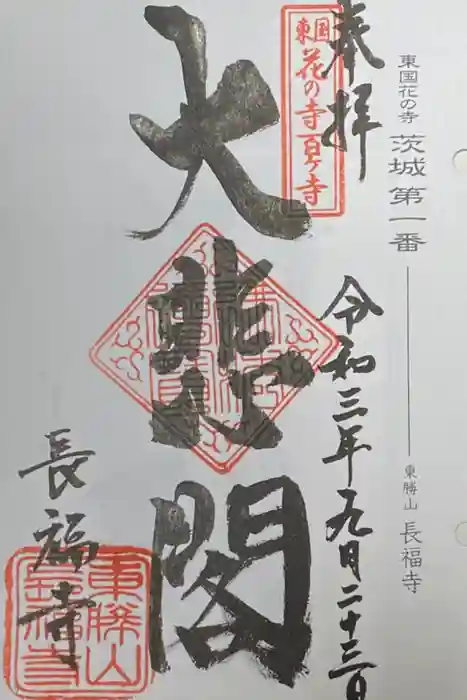 東国花の寺 茨城第一番 ── 東勝山 長福寺
奉拝
令和三年九月二十三日
東国
花の寺百ヶ寺
大悲閣
長福寺
東勝山
長福寺